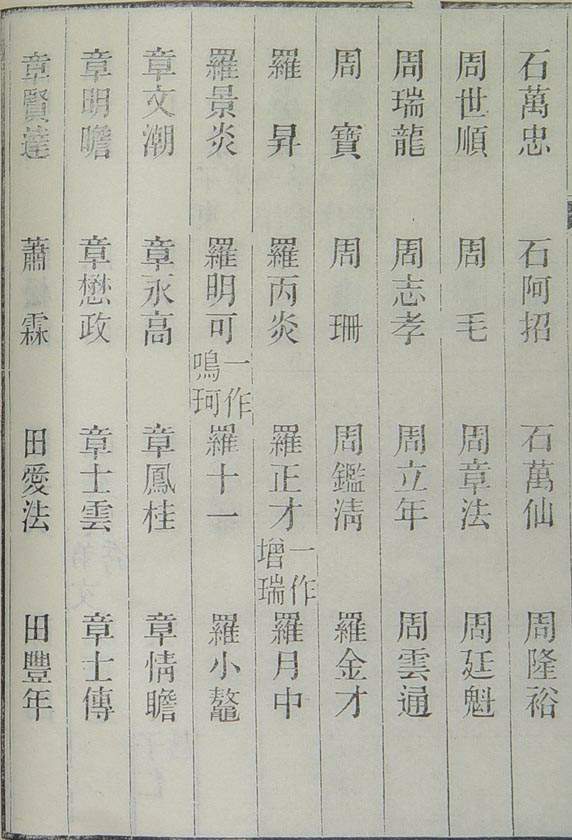 石萬忠 石阿招 石萬仙 周隆裕
周世順 周毛 周章法 周廷魁
周瑞龍 周志孝 周立年 周雲通
周寶 周珊 周鑑淸 羅金才
羅昇 羅丙炎 羅正才一作增瑞 羅月中
羅景炎 羅明可一作鳴珂 羅十一 羅小鼇
章文潮 章永高 章鳳桂 章情瞻
章明瞻 章懋政 章士雲 章士傳
章賢達 蕭霖 田愛法 田豐年